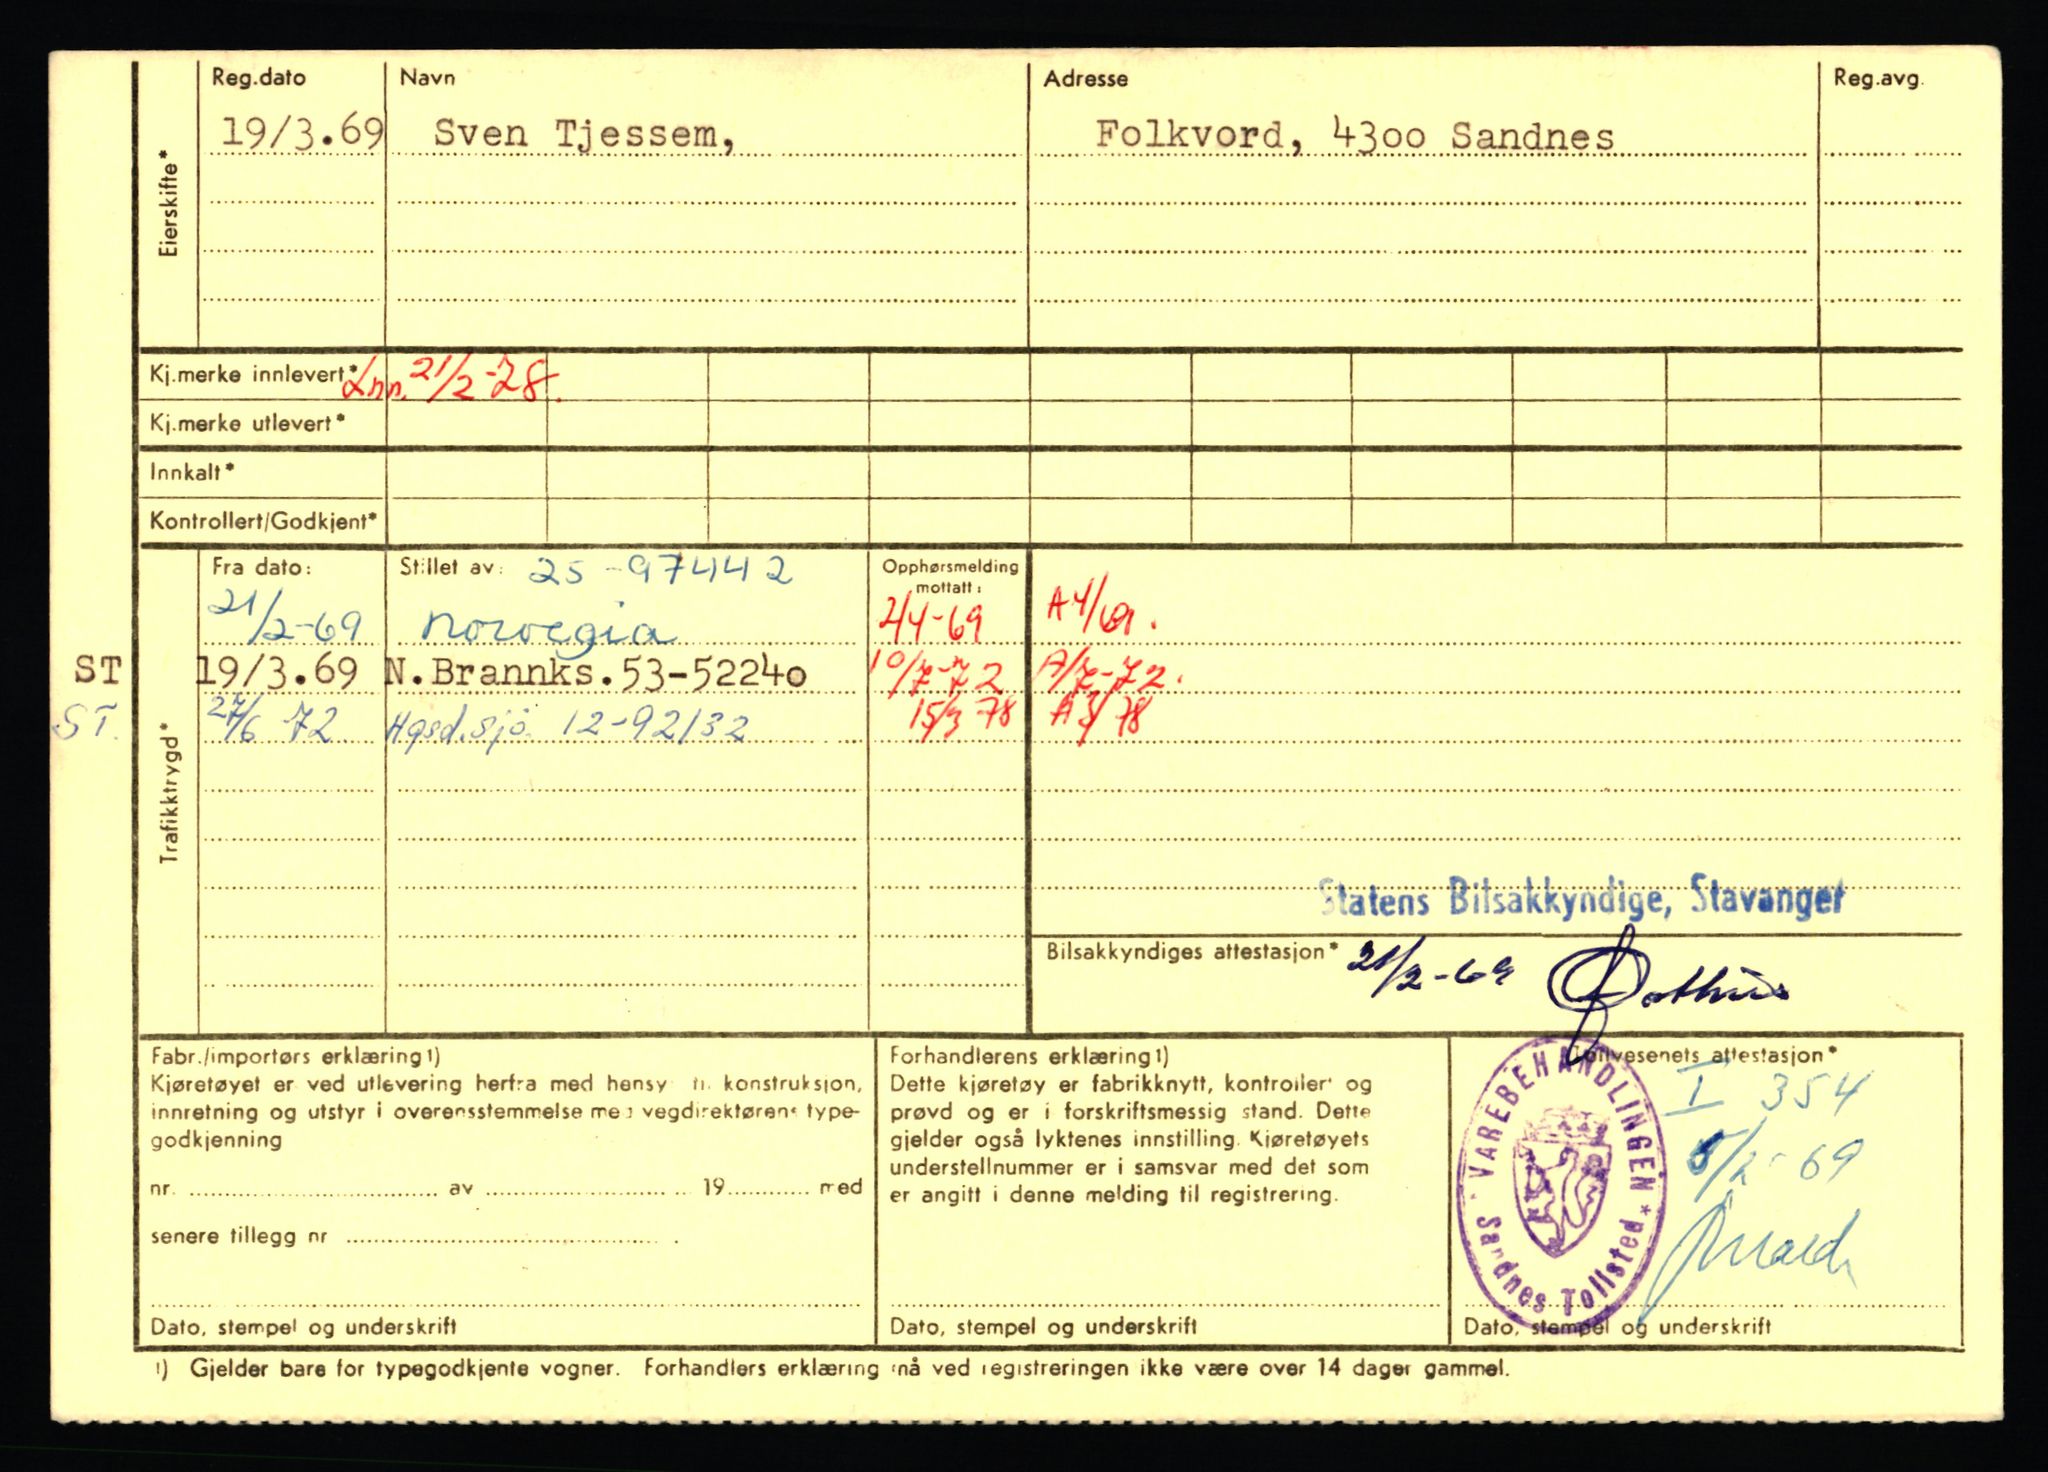 Reg.dato Navn Adresse Reg.avg.
Eierskifte*
19/3.69 Sven Tjessem, Folkvord, 4300 Sandnes
Kj.merke innlevert* Inn. 21/2-78.
Kj.merke utlevert*
Innkalt*
Kontrollert/Godkjent*
Trafikktrygd*
Fra dato: Stillet av: 25-97442 Opphørsmelding mottatt:
21/2-69 Norvegia 2/4-69 A4/69.
ST 19/3.69 N.Brannks.53-52240 10/7-72 A/7-72.
ST. 27/6 72 Hgsd.sjö 12-92132 15/3 78 A3/78
Statens Bilsakkyndige, Stavanger
Bilsakkyndiges attestasjon* 21/2-69
Fabr./importørs erklæring 1)
Kjøretøyet er ved utlevering herfra med hensyn til konstruksjon,
innretning og utstyr i overensstemmelse med vegdirektørens type-
godkjenning
nr. av 19 med
senere tillegg nr
Dato, stempel og underskrift
Forhandlerens erklæring 1)
Dette kjøretøy er fabrikknytt, kontrollert og
prøvd og er i forskriftsmessig stand. Dette
gjelder også lyktenes innstilling. Kjøretøyets
understellnummer er i samsvar med det som
er angitt i denne melding til registrering.
Dato, stempel og underskrift
Tollvesenets attestasjon*
I 354
5/2-69
VAREBEHANDLINGEN * Sandnes Tollsted *
Dato, stempel og underskrift
1) Gjelder bare for typegodkjente vogner. Forhandlers erklæring må ved registreringen ikke være over 14 dager gammel.